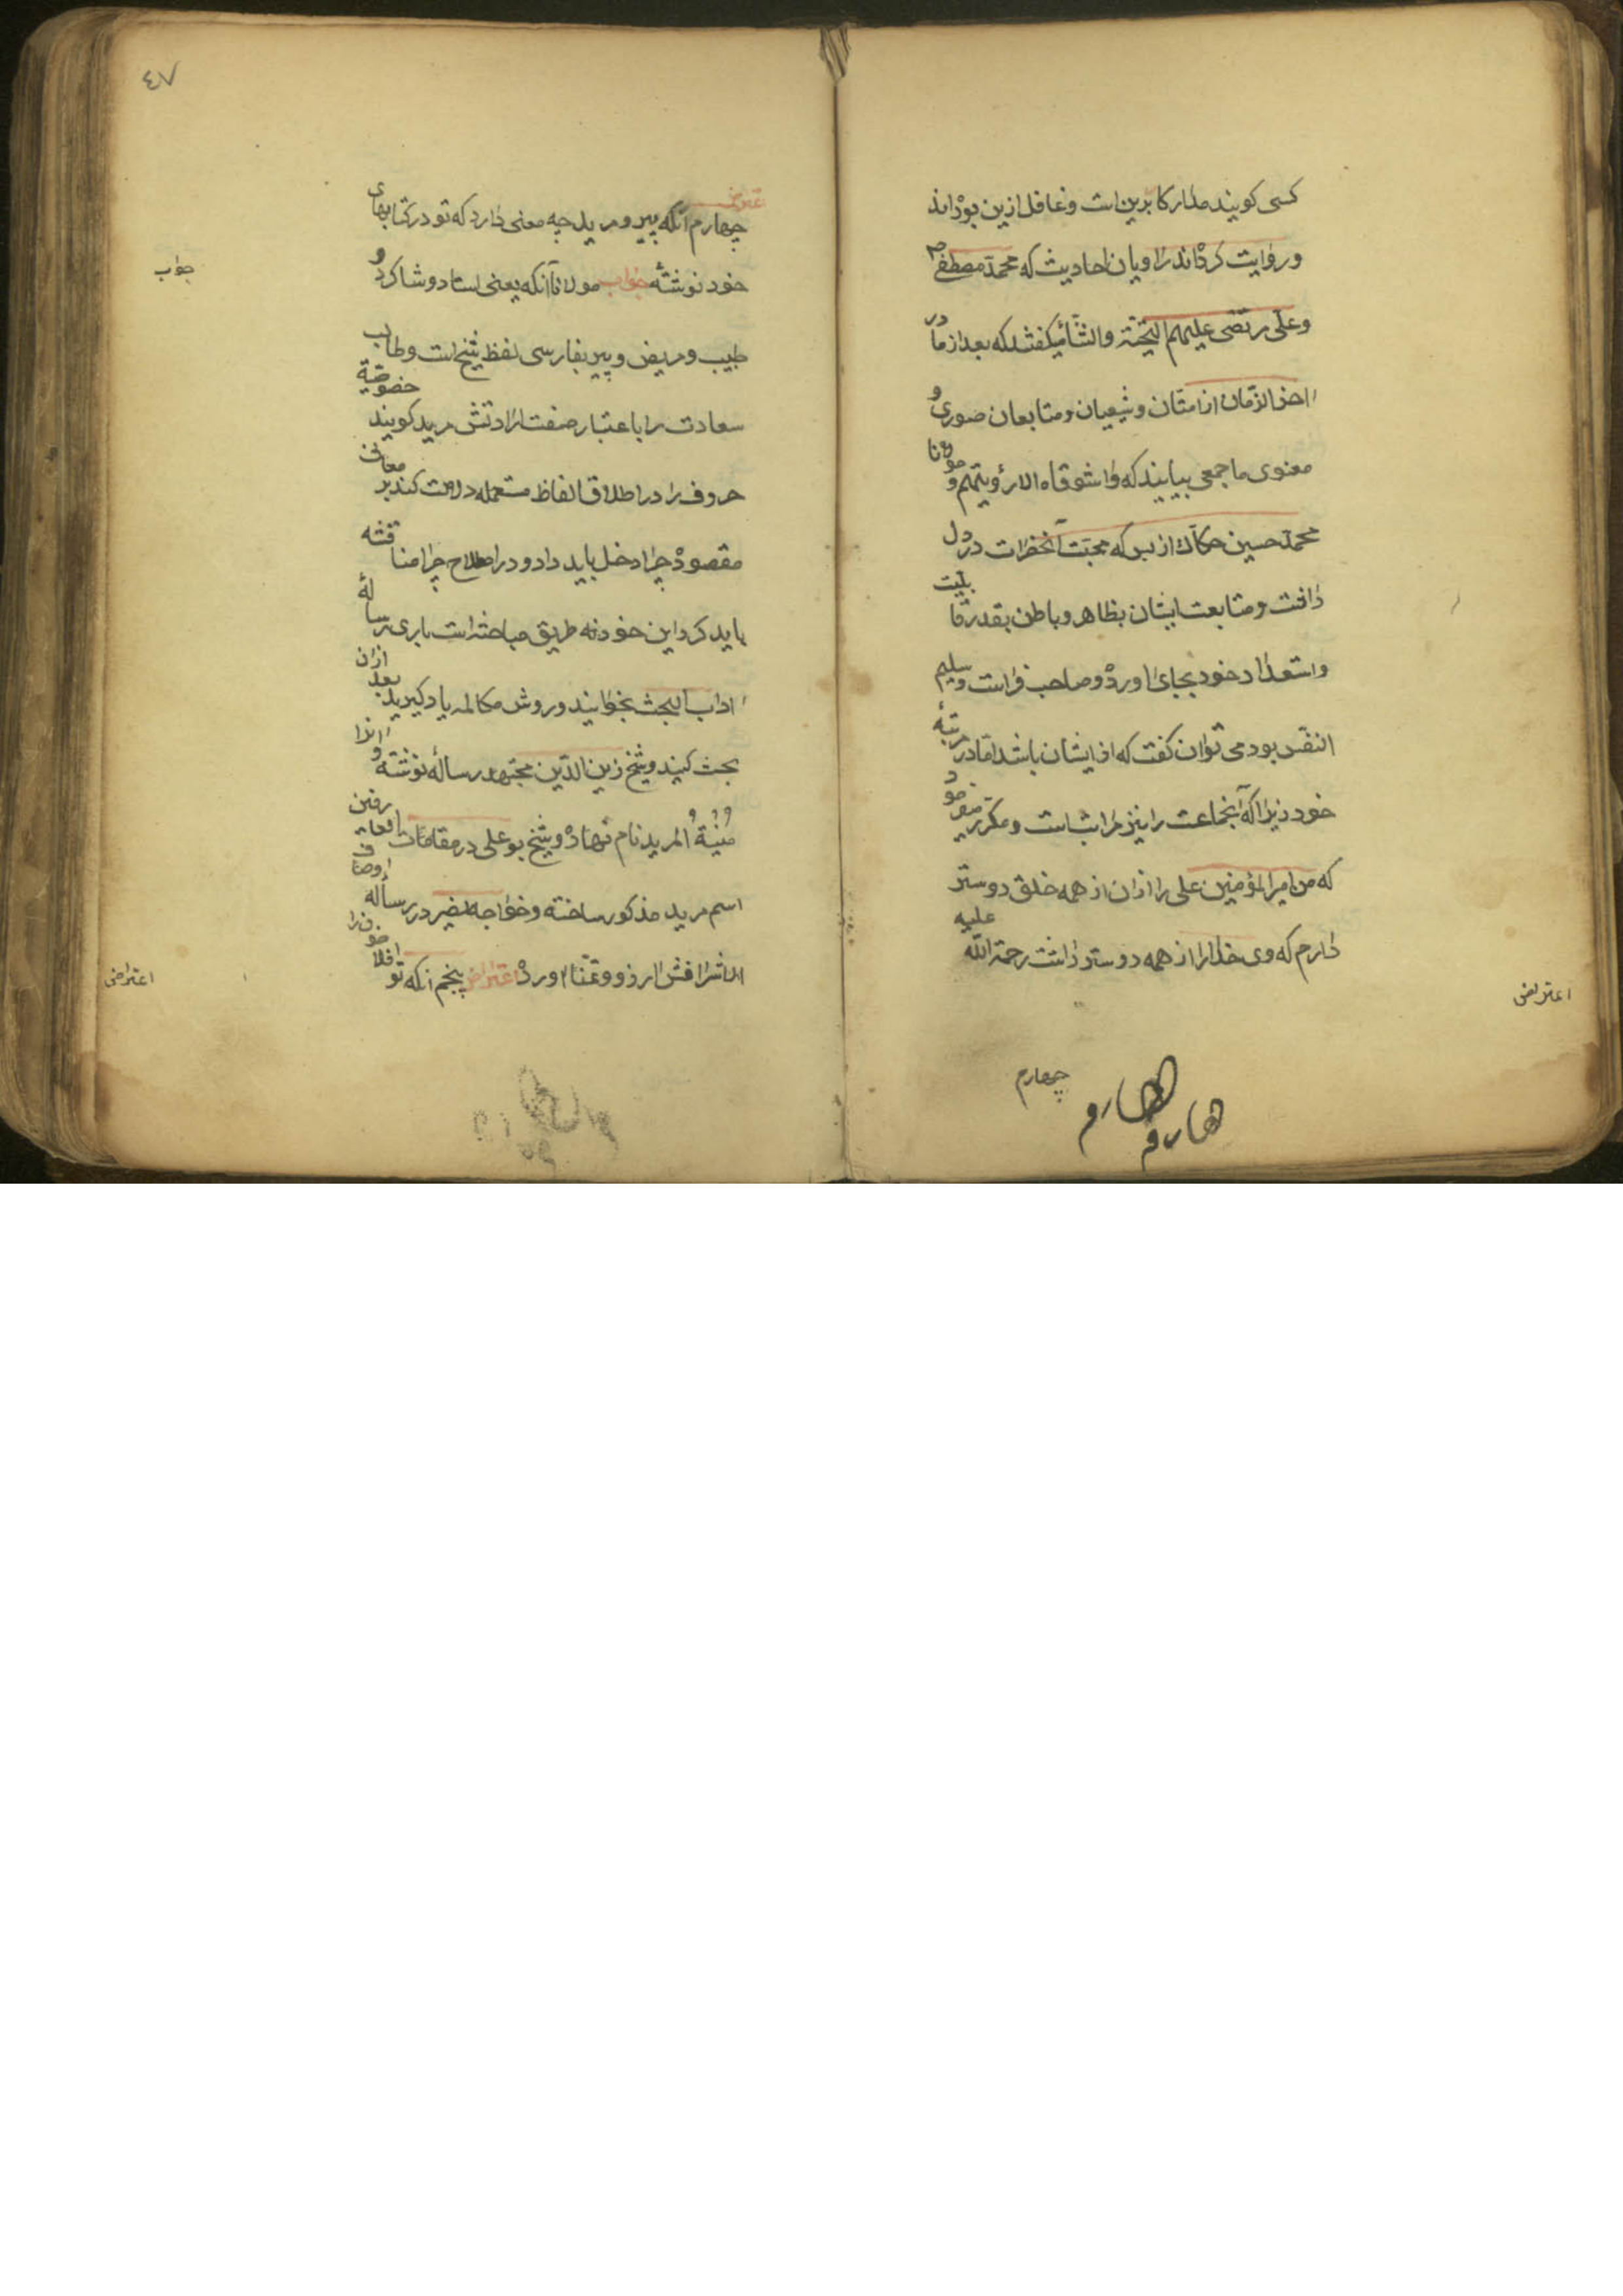 کسی کویند مدار کار برین است و غافل ازین بوده‌اند
و روایت کرده‌اند راویان احادیث که محمد مصطفی ص
و علی مرتضی علیهم التحیّة والثناء میکفتند که بعد از ما در
آخر الزمان از امتان و شیعیان و متابعان صوری و
معنوی ما جمعی بیایند که واشوقاه الی رؤیتهم و مولانا
محمد حسین حکاک از بس که محبت آنحضرات در دل
داشت و متابعت ایشان بظاهر و باطن بقدر قابلیت
و استعداد خود بجای آورده و صاحب فراست و سلیم
النفس بود می توان کفت که از ایشان باشد اما در مرتبهٔ
خود زیرا که آنجماعت را نیز مراتب است و مکرر میفرمود
که من امیر المؤمنین علی را ازان از همه خلق دوستر
دارم که وی خدا را از همه دوستر داشت رحمة الله علیه
اعتراض
چهارم
٤٧
اعتراض
چهارم آنکه پیر و مرید چه معنی دارد که تو در کتابهای
خود نوشتهٔ جواب مولانا آنکه یعنی استاد و شاکرد و
جواب
طبیب و مریض و پیر بفارسی لفظ شیخ است و طالب
سعادت را باعتبار صفت ارادتش مرید کویند خصوصیة
حروف را در اطلاق الفاظ مستعمله دلالت کند بر معانی
مقصوده چرا دخل باید داد و در اصطلاح چرا مناقشه
باید کرد این خود نه طریق مباحثه است باری رسالهٔ
اداب البحث بخوانید و روش مکالمه یاد کیرید بعد ازان
بحث کنید و شیخ زین الدین مجتهد رسالهٔ نوشته و انرا
منیة المرید نام نهاده و شیخ بو علی در مقامات العارفین
اسم مرید مذکور ساخته و خواجه نصیر در رساله اوصاف
الاشراف اورده اعتراض پنجم انکه تو
اعتراض